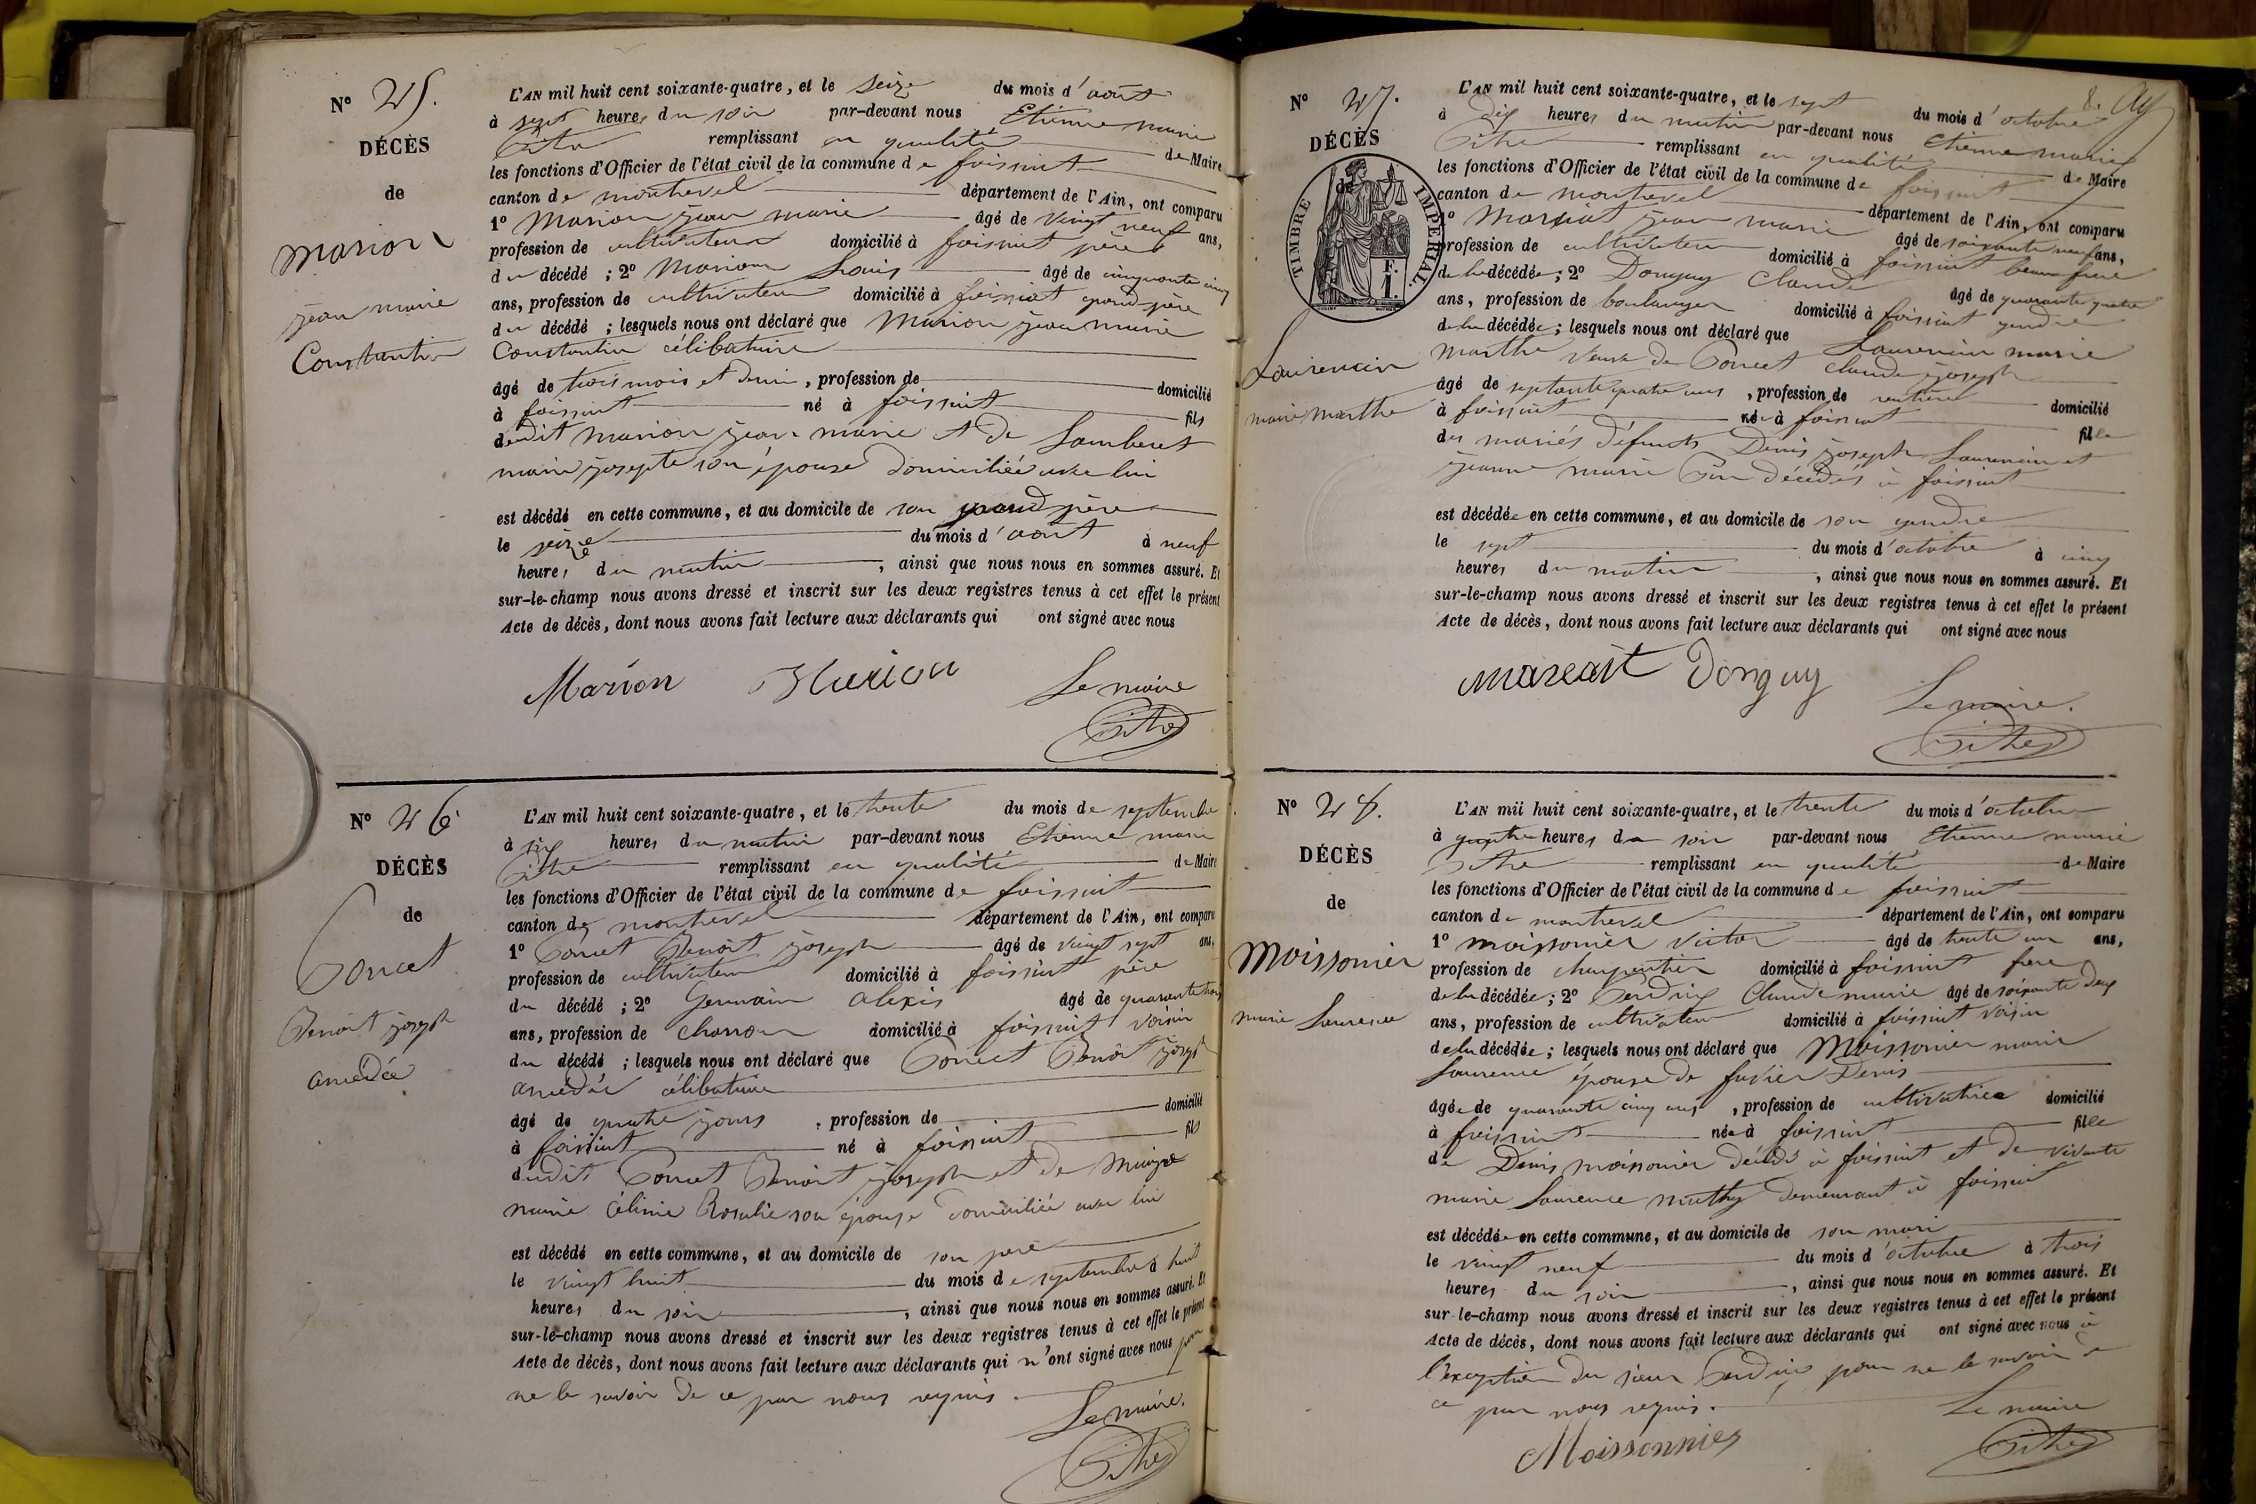 N° 25.
DÉCÈS
de
Marion
jean marie
Constantin
L'AN mil huit cent soixante-quatre, et le seize du mois d'août
à sept heures du soir par-devant nous Etienne marie
Pitre remplissant en qualité de Maire
les fonctions d'Officier de l'état civil de la commune de foissiat
canton de montrevel département de l'Ain, ont comparu
1° Marion jean marie âgé de vingt neuf ans,
profession de cultivateur domicilié à foissiat père
du décédé ; 2° Marion Louis âgé de cinquante cinq
ans, profession de cultivateur domicilié à foissiat grand père
du décédé ; lesquels nous ont déclaré que Marion jean marie
Constantin célibataire
âgé de trois mois et demi, profession de domicilié
à foissiat né à foissiat fils
dudit Marion jean marie et de Lamberet
marie josepte son épouse domiciliée avec lui
est décédé en cette commune, et au domicile de son grand père
le seize du mois d'août à neuf
heures du matin, ainsi que nous nous en sommes assuré. Et
sur-le-champ nous avons dressé et inscrit sur les deux registres tenus à cet effet le présent
Acte de décès, dont nous avons fait lecture aux déclarants qui ont signé avec nous
Marion Marion Le maire
Pitre
N° 26
DÉCÈS
de
Poncet
Benoit joseph
amédée
L'AN mil huit cent soixante-quatre, et le trente du mois de septembre
à six heures du matin par-devant nous Etienne marie
Pitre remplissant en qualité de Maire
les fonctions d'Officier de l'état civil de la commune de foissiat
canton de montrevel département de l'Ain, ont comparu
1° Poncet Benoit joseph âgé de vingt sept ans,
profession de cultivateur domicilié à foissiat père
du décédé ; 2° Germain alexis âgé de quarante trois
ans, profession de charron domicilié à foissiat voisin
du décédé ; lesquels nous ont déclaré que Poncet Benoit joseph
amédée célibataire
âgé de quatre jours, profession de domicilié
à foissiat né à foissiat fils
dudit Poncet Benoit joseph et de
marie Céline Rosalie son épouse domiciliée avec lui
est décédé en cette commune, et au domicile de son père
le vingt huit du mois de septembre à huit
heures du soir, ainsi que nous nous en sommes assuré. Et
sur-le-champ nous avons dressé et inscrit sur les deux registres tenus à cet effet le présent
Acte de décès, dont nous avons fait lecture aux déclarants qui n'ont signé avec nous pour
ne le savoir de ce par nous requis.
Le maire.
Pitre
8.
N° 27.
DÉCÈS
de
TIMBRE IMPÉRIAL.
F.
1.
Laurencin
marie marthe
L'AN mil huit cent soixante-quatre, et le sept du mois d'octobre
à dix heures du matin par-devant nous Etienne marie
Pitre remplissant en qualité de Maire
les fonctions d'Officier de l'état civil de la commune de foissiat
canton de montrevel département de l'Ain, ont comparu
1° jean marie âgé de soixante neuf ans,
profession de cultivateur domicilié à foissiat beau frère
de la décédée ; 2° Donguy Claude âgé de quarante quatre
ans, profession de boulanger domicilié à foissiat gendre
de la décédée ; lesquels nous ont déclaré que Laurencin marie
marthe veuve de Poncet Claude joseph
âgé de septante quatre ans, profession de rentière domicilié
à foissiat née à foissiat fille
des mariés défunts Denis joseph Laurencin et
jeanne marie décédés à foissiat
est décédée en cette commune, et au domicile de son gendre
le sept du mois d'octobre à cinq
heures du matin, ainsi que nous nous en sommes assuré. Et
sur-le-champ nous avons dressé et inscrit sur les deux registres tenus à cet effet le présent
Acte de décès, dont nous avons fait lecture aux déclarants qui ont signé avec nous
Donguy
Le maire.
Pitre
N° 28.
DÉCÈS
de
Moissonier
marie Laurence
L'AN mil huit cent soixante-quatre, et le trente du mois d'octobre
à quatre heures du soir par-devant nous Etienne marie
Pitre remplissant en qualité de Maire
les fonctions d'Officier de l'état civil de la commune de foissiat
canton de montrevel département de l'Ain, ont comparu
1° moissonier victor âgé de trente un ans,
profession de charpentier domicilié à foissiat frère
de la décédée ; 2° Perdrix Claude marie âgé de soixante deux
ans, profession de cultivateur domicilié à foissiat voisin
de la décédée ; lesquels nous ont déclaré que Moissonier marie
Laurence épouse de favier Denis
âgée de quarante cinq ans, profession de cultivatrice domicilié
à foissiat née à foissiat fille
de Denis moissonier décédé à foissiat et de vivante
marie Laurence mathy demeurant à foissiat
est décédée en cette commune, et au domicile de son mari
le vingt neuf du mois d'octobre à trois
heures du soir, ainsi que nous nous en sommes assuré. Et
sur-le-champ nous avons dressé et inscrit sur les deux registres tenus à cet effet le présent
Acte de décès, dont nous avons fait lecture aux déclarants qui ont signé avec nous à
l'exception du sieur Perdrix pour ne le savoir de
ce par nous requis. Le maire
Moissonnier Pitre